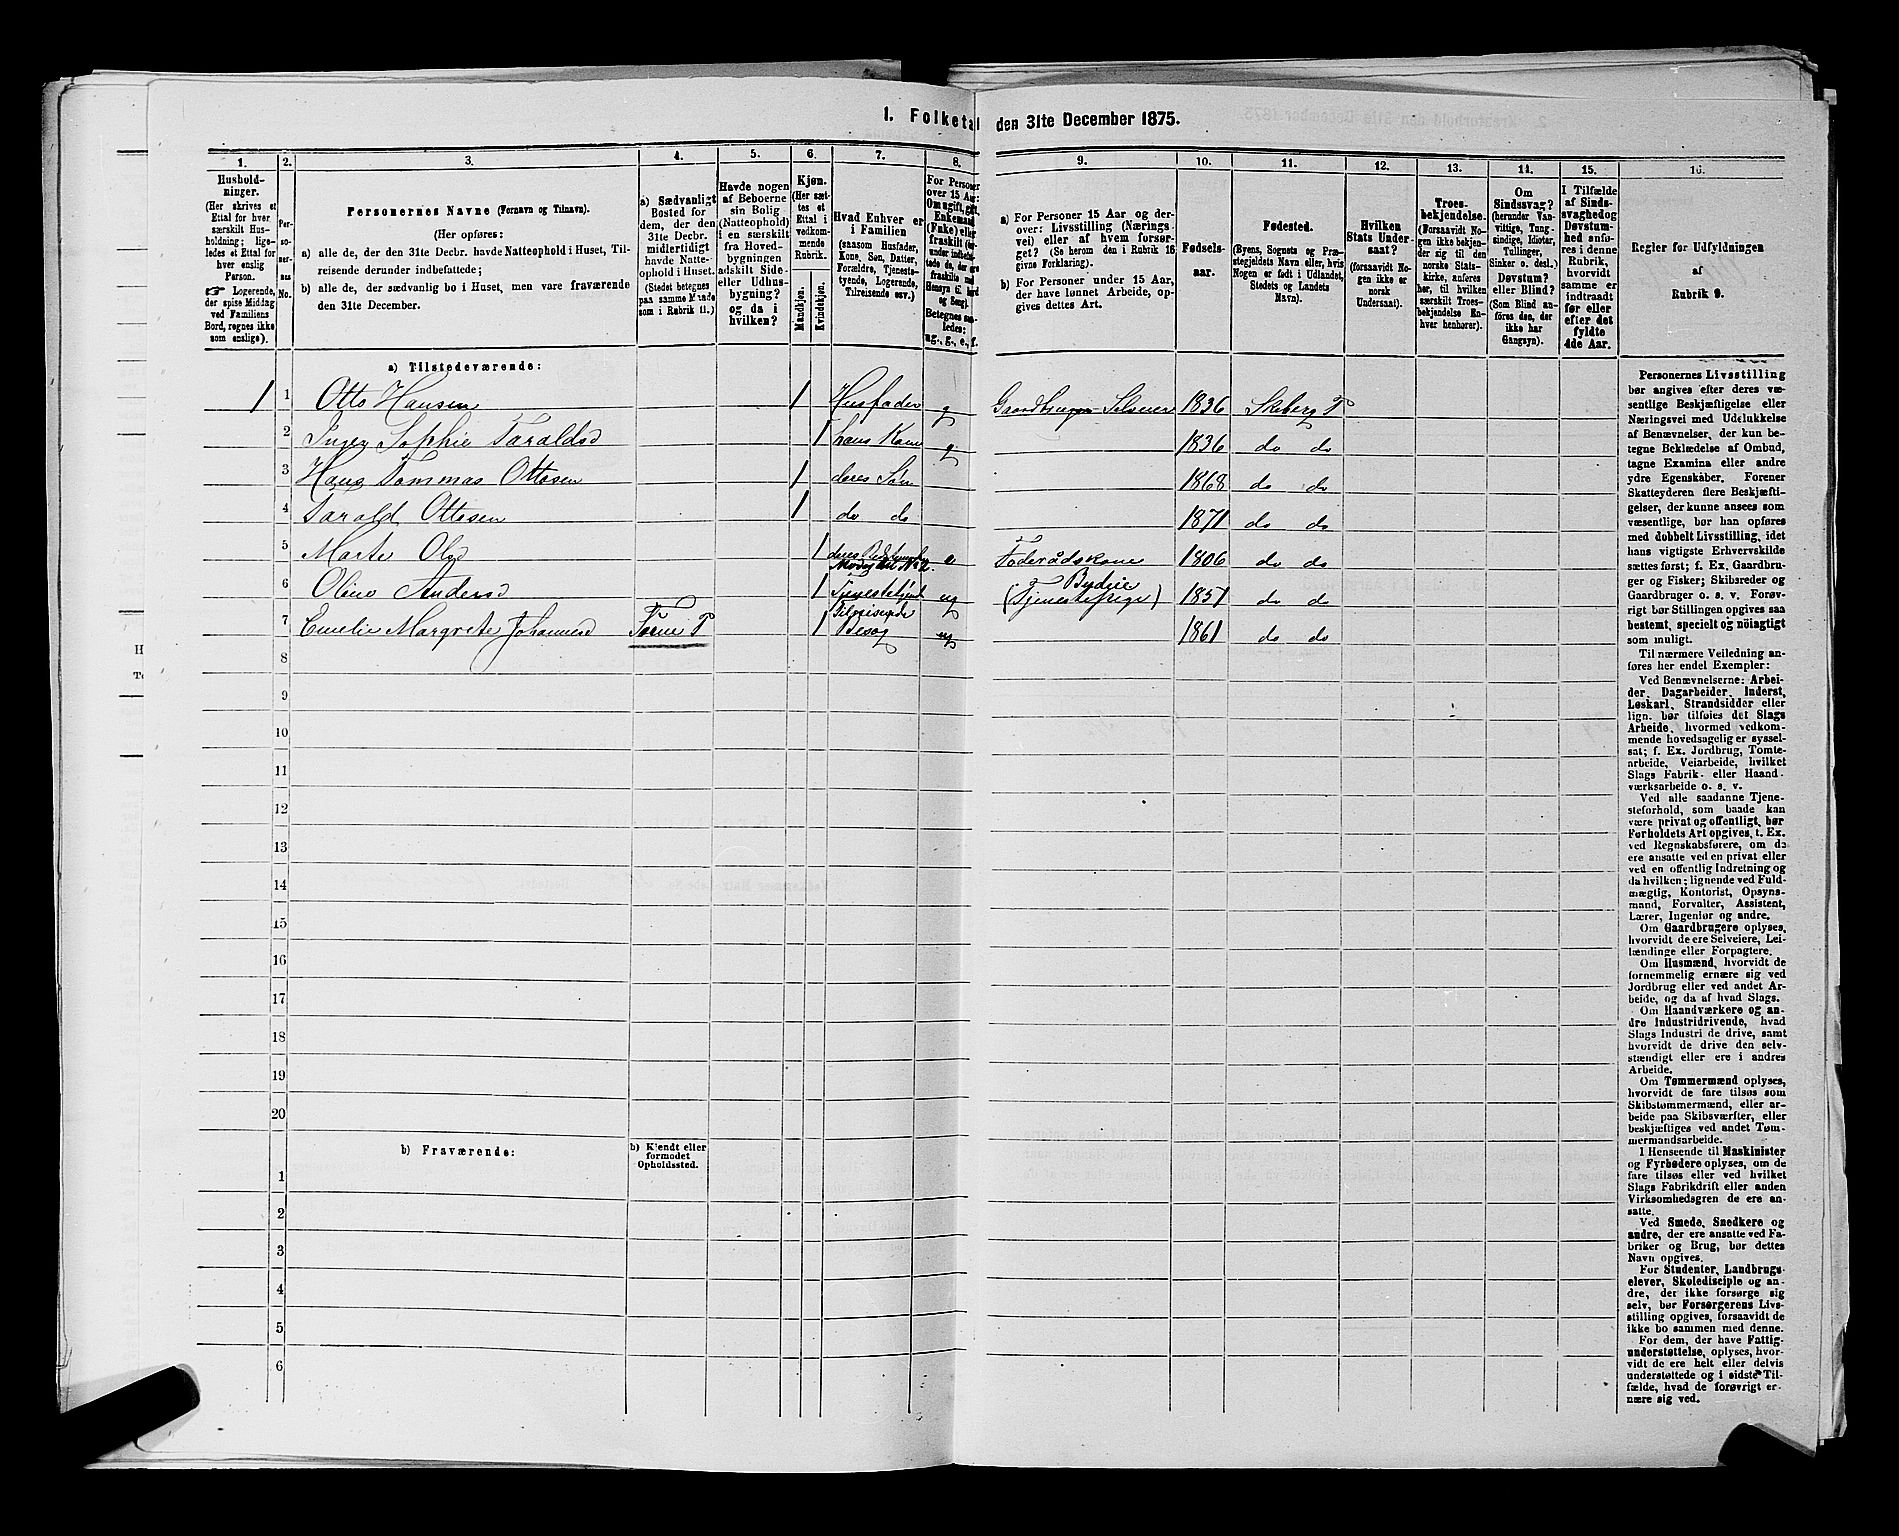 1. Folketal den 31te December 1875.
1. 2. 3. 4. 5. 6. 7. 8. 9. 10. 11. 12. 13. 14. 15. 16.
Hushold-
ninger.
(Her skrives et
Ettal for hver
særskilt Hus-
holdning; lige-
ledes et Ettal for
hver enslig
Person.
☞ Logerende,
der spise Middag
ved Familiens
Bord, regnes ikke
som enslige).
Per-
so-
ner-
nes
No.
Personernes Navne (Fornavn og Tilnavn).
(Her opføres:
a) alle de, der den 31te Decbr. havde Natteophold i Huset, Til-
reisende derunder indbefattede;
b) alle de, der sædvanlig bo i Huset, men vare fraværende
den 31te December.
a) Sædvanligt
Bosted for
dem, der den
31te Decbr.
midlertidigt
havde Natte-
ophold i Huset.
(Stedet betegnes
paa samme Maade
som i Rubrik 11.)
Havde nogen
af Beboerne
sin Bolig
(Natteophold)
i en særskilt
fra Hoved-
bygningen
adskilt Side-
eller Udhus-
bygning?
og da i
hvilken?
Kjøn.
(Her sæt-
tes et
Ettal i
vedkom-
mende
Rubrik.
Mandkjøn.
Kvindekjøn.
Hvad Enhver er
i Familien
(saasom Husfader,
Kone, Søn, Datter,
Forældre, Tjeneste-
tyende, Logerende,
Tilreisende osv.)
For Personer
over 15 Aar:
Om ugift, gift,
Enkemand
(Enke) eller
fraskilt
Betegnes saa-
ledes:
ug., g., e., f.
a) For Personer 15 Aar og der-
over: Livsstilling (Nærings-
vei) eller af hvem forsør-
get? (Se herom den i Rubrik 16
givne Forklaring).
b) For Personer under 15 Aar,
der have lønnet Arbeide, op-
gives dettes Art.
Fødsels-
aar.
Fødested.
(Byens, Sognets og Præ-
stegjeldets Navn eller, hvis
Nogen er født i Udlandet,
Stedets og Landets
Navn).
Hvilken
Stats Under-
saat?
(forsaavidt No-
gen ikke er
norsk
Undersaat).
Troes-
bekjendelse.
(Forsaavidt No-
gen ikke bekjen-
der sig til den
norske Stats-
kirke, anføres
her, til hvilken
særskilt Troes-
bekjendelse En-
hver henhører).
Om
Sindssvag?
(herunder Van-
vittige, Tung-
sindige, Idioter,
Tullinger,
Sinker o. desl.)
Døvstum?
eller Blind?
(Som Blind an-
føres den, der
ikke har
Gangsyn).
I Tilfælde
af Sinds-
svaghed og
Døvstum-
hed anfø-
res i denne
Rubrik,
hvorvidt
samme er
indtraadt
før eller
efter det
fyldte
4de Aar.
Regler for Udfyldningen
af
Rubrik 9.
a) Tilstedeværende:
1 1 Otto Hansen 1 Husfader g Gaardbruger Selveier 1836 Skeberg P
2 Inger Sophie Taraldsd 1 hans Kone g 1836 do do
3 Hans Tommas Ottosen 1 deres Søn 1868 do do
4 Tarald Ottesen 1 do do 1871 do do
5 Marte Olsd 1 deres Moder til No 2. e Foderådskone 1806 do do
6 Oline Andersd 1 Tjenestetyende ug Budeie (Tjenestepige) 1857 do do
7 Emelie Margrete Johannesd Torne P 1 Tilreisende Besøg ug 1861 do do
8
9
10
11
12
13
14
15
16
17
18
19
20
b) Fraværende:
b) Kjendt eller
formodet
Opholdssted.
1
2
3
4
5
6
Personernes Livsstilling
bør angives efter deres væ-
sentlige Beskjæftigelse eller
Næringsvei med Udelukkelse
af Benævnelser, der kun be-
tegne Beklædelse af Ombud,
tagne Examina eller andre
ydre Egenskaber. Forener
Skatteyderen flere Beskjæfti-
gelser, der kunne ansees som
væsentlige, bør han opføres
med dobbelt Livsstilling, idet
hans vigtigste Erhvervskilde
sættes først; f. Ex. Gaardbru-
ger og Fisker; Skibsreder og
Gaardbruger o. s. v. Forøv-
rigt bør Stillingen opgives saa
bestemt, specielt og nøiagtigt
som muligt.
Til nærmere Veiledning an-
føres her endel Exempler:
Ved Benævnelserne: Arbei-
der, Dagarbeider, Inderst,
Løskarl, Strandsidder eller
lign. bør tilføies det Slags
Arbeide, hvormed vedkom-
mende hovedsagelig er syssel-
sat; f. Ex. Jordbrug, Tomte-
arbeide, Veiarbeide, hvilket
Slags Fabrik- eller Haand-
værksarbeide o. s. v.
Ved alle saadanne Tjene-
steforhold, som baade kan
være privat og offentligt, bør
Forholdets Art opgives, t. Ex.
ved Regnskabsførere, om de
ere ansatte ved en privat eller
ved en offentlig Indretning og
da hvilken; lignende ved Fuld-
mægtig, Kontorist, Opsyns-
mand, Forvalter, Assistent,
Lærer, Ingeniør og andre.
Om Gaardbrugere oplyses,
hvorvidt de ere Selveiere, Lei-
lændinge eller Forpagtere.
Om Husmænd, hvorvidt de
fornemmelig ernære sig ved
Jordbrug eller ved andet Ar-
beide, og da af hvad Slags.
Om Haandværkere og an-
dre Industridrivende, hvad
Slags Industri de drive, samt
hvorvidt de drive den selv-
stændigt eller ere i andres
Arbeide.
Om Tømmermænd oplyses,
hvorvidt de fare tilsøs som
Skibstømmermænd, eller ar-
beide paa Skibsværfter, eller
beskjæftiges ved andet Tøm-
mermandsarbeide.
I Henseende til Maskinister
og Fyrbødere oplyses, om de
fare tilsøs eller ved hvilket
Slags Fabrikdrift eller anden
Virksomhedsgren de ere an-
satte.
Ved Smede, Snedkere og
andre, der ere ansatte ved Fa-
briker og Brug, bør dettes
Navn opgives.
For Studenter, Landbrugs-
elever, Skoledisciple og an-
dre, der ikke forsørge sig
selv, bør Forsørgerens Livs-
stilling opgives, forsaavidt de
ikke bo sammen med denne.
For dem, der have Fattig-
understøttelse, oplyses, hvor-
vidt de ere helt eller delvis
understøttede og i sidste Til-
fælde, hvad de forøvrigt er-
nære sig ved.